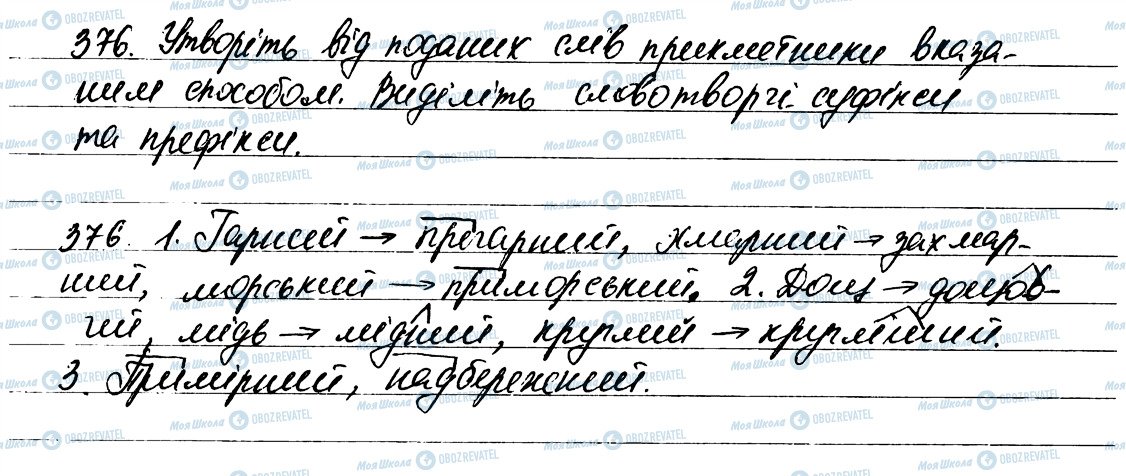 376. Утворіть від поданих слів прикметники вказа-
ним способом. Виділіть словотворчі суфікси
та префікси.
376. 1. Гарний → прегарний, хмарний → захмар-
ний, морський → приморський. 2. Дощ → дощов-
ий, мідь → мідний, круглий → кругліший.
3. Примірний, надбережний.